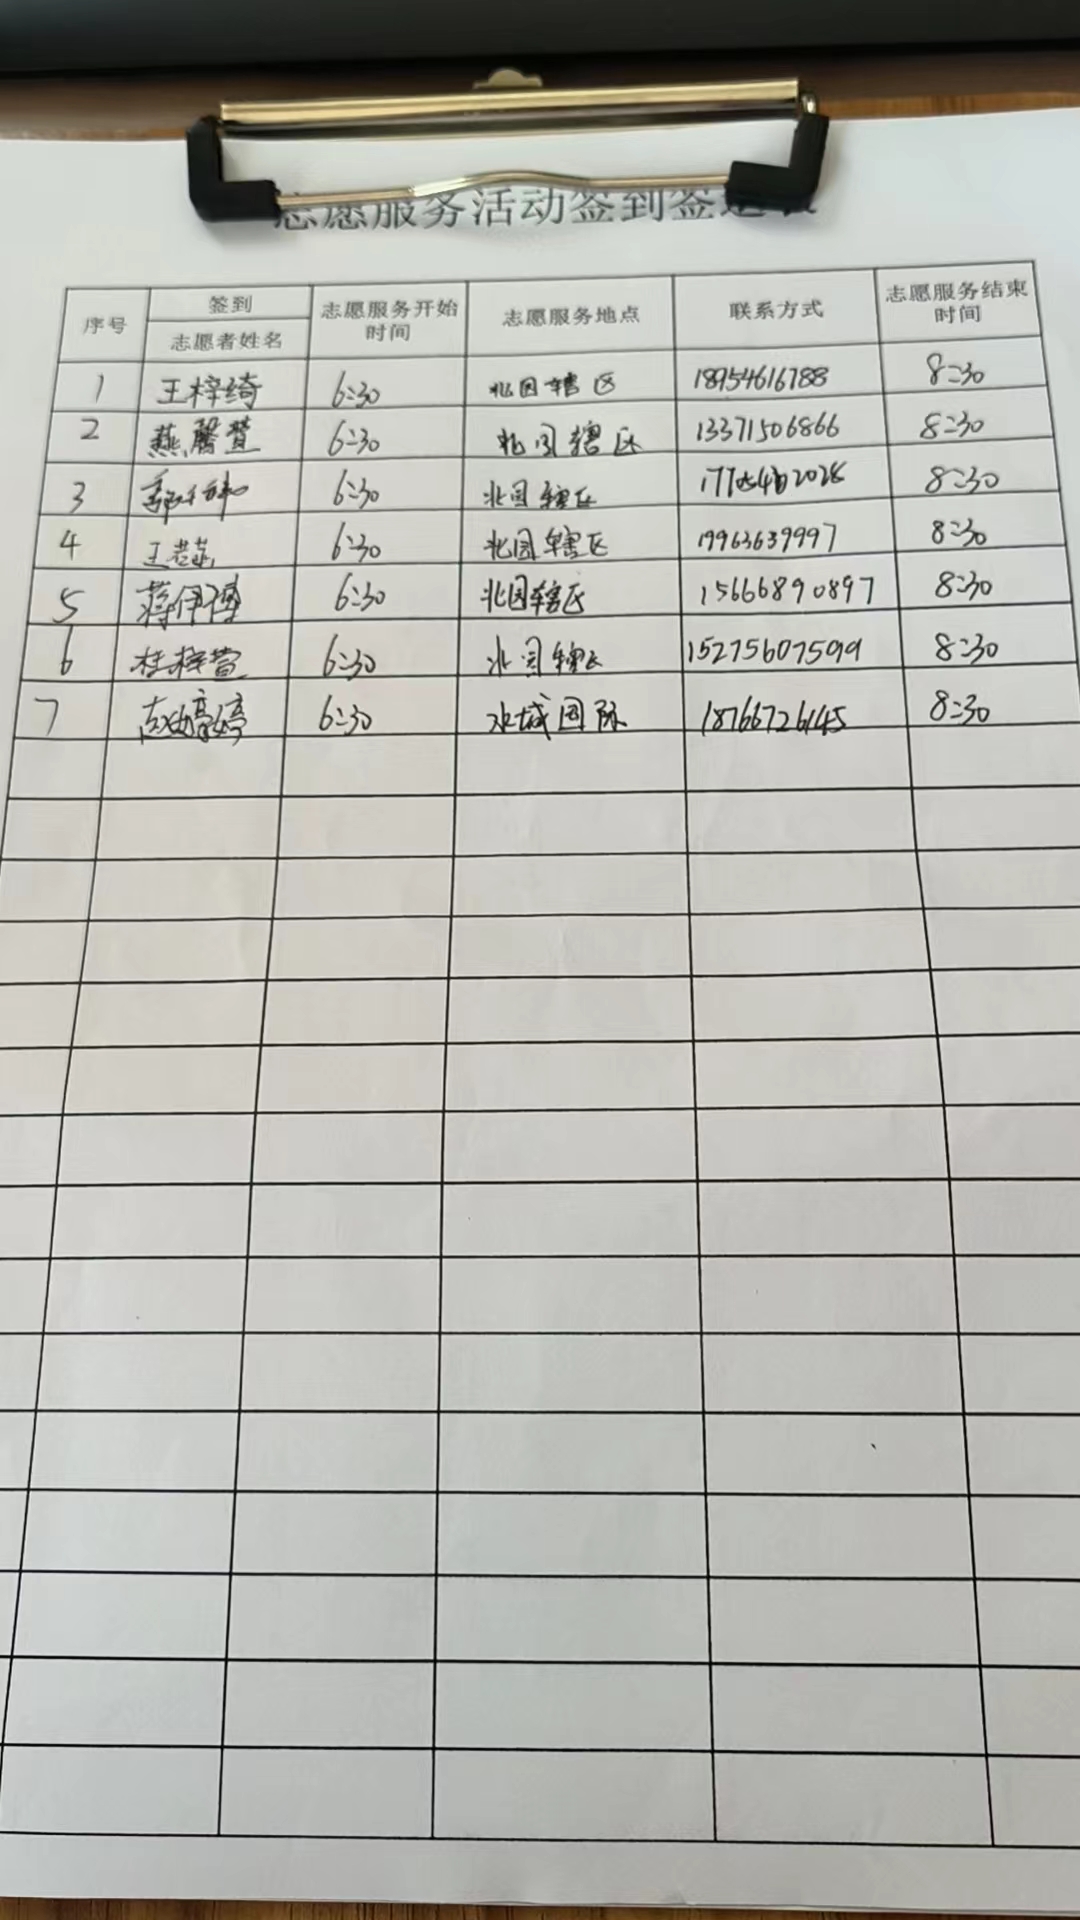 志愿服务活动签到签退表
序号 签到 志愿者姓名 志愿服务开始时间 志愿服务地点 联系方式 志愿服务结束时间
1 王梓绮 6:30 北园辖区 18954616788 8:30
2 燕馨萱 6:30 北园辖区 13371506866 8:30
3 6:30 北园辖区 8:30
4 6:30 北园辖区 19963639997 8:30
5 蒋伊博 6:30 北园辖区 15666890897 8:30
6 桂梓萱 6:30 北园辖区 15275607599 8:30
7 6:30 水城国际 18766726145 8:30